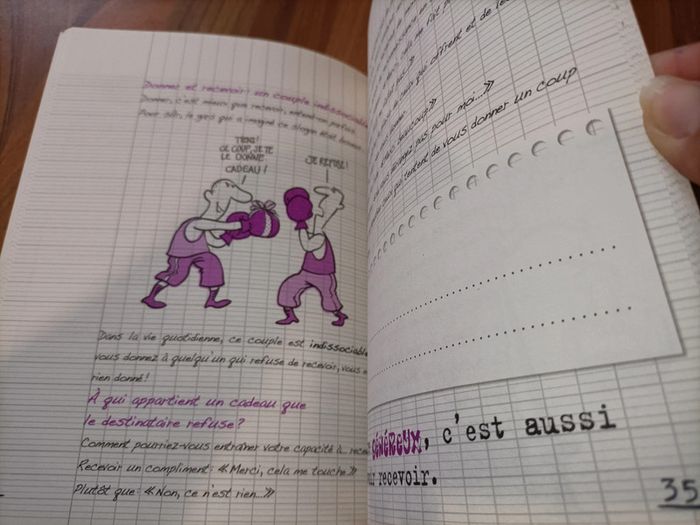 Donner et recevoir: un couple indissociable
Donner, c'est mieux que recevoir, entend-on parfois.
Pour sûr, le gars qui a imaginé ce slogan était
TIENS!
CE COUP, JE TE
LE DONNE.
CADEAU!
JE REFUSE!
Dans la vie quotidienne, ce couple est indissociable
vous donnez à quelqu'un qui refuse de recevoir, vous
rien donné!
À qui appartient un cadeau que
le destinataire refuse?
Comment pourriez-vous entraîner votre capacité à...
Recevoir un compliment: «Merci, cela me touche»
Plutôt que: «Non, ce n'est rien...»
qui offrent et de
beaucoup.»
pas pour moi...»
qui tentent de vous donner un coup
GÉNÉREUX, c'est aussi
recevoir.
35